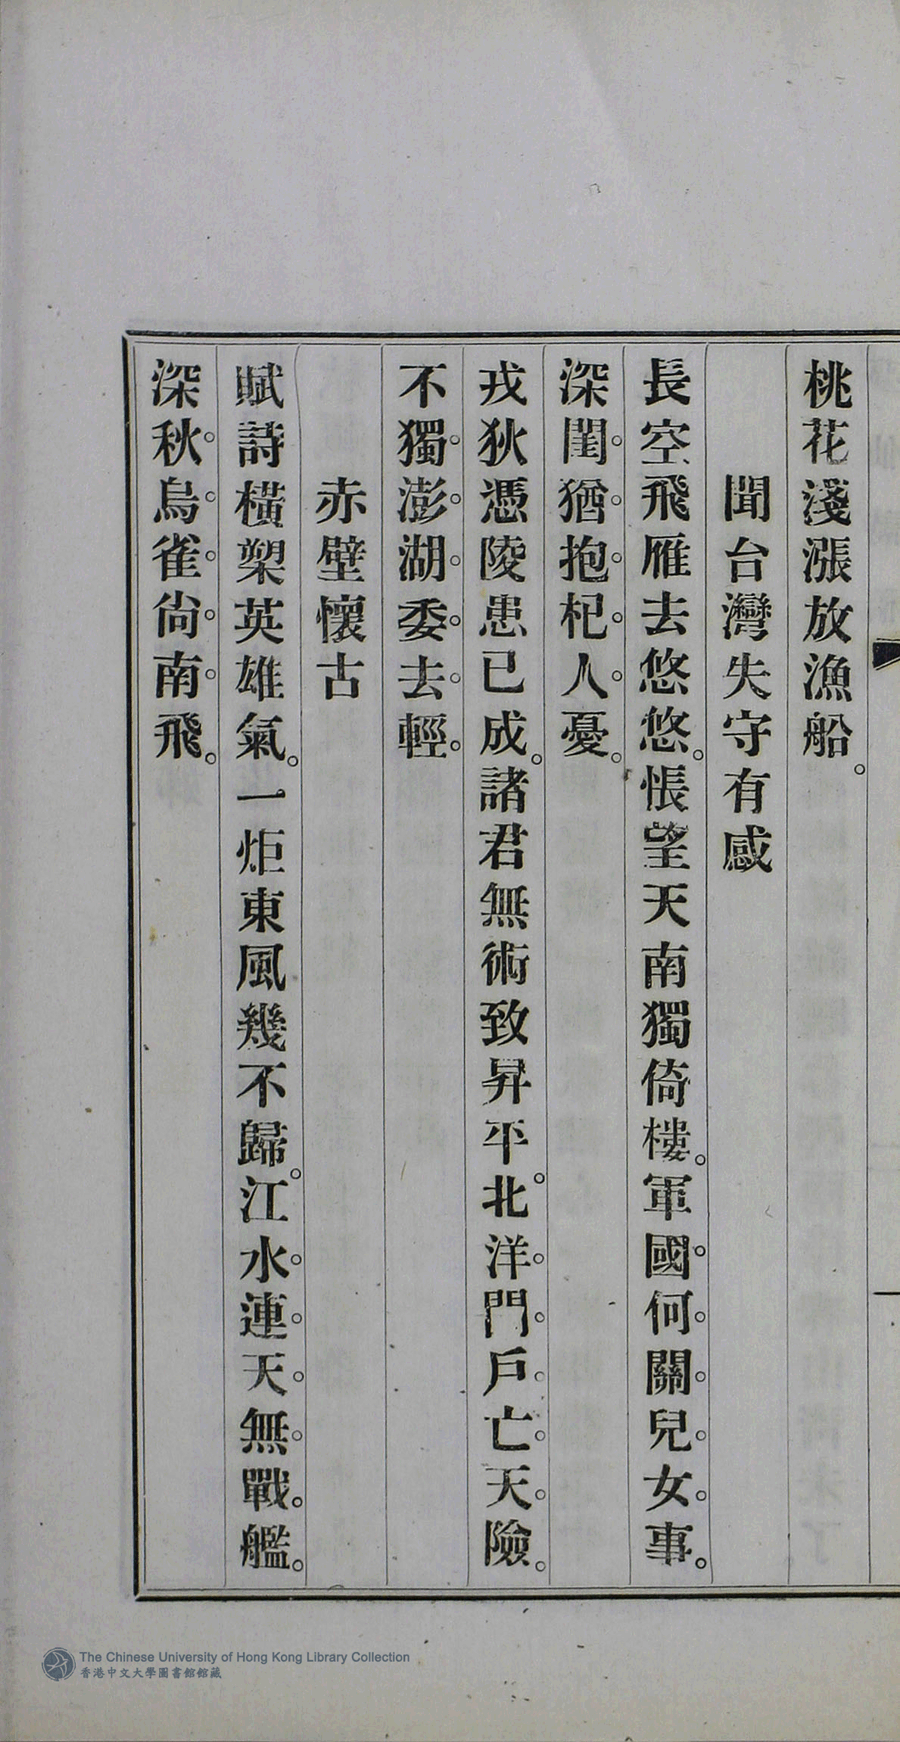 桃花淺漲放漁船。
聞台灣失守有感
長空飛雁去悠悠。悵望天南獨倚樓。軍國何關兒女事。
深閨猶抱杞人憂。
戎狄憑陵患已成。諸君無術致昇平。北洋門戶亡天險。
不獨澎湖委去輕。
赤壁懷古
賦詩橫槊英雄氣。一炬東風幾不歸。江水連天無戰艦。
深秋烏雀尙南飛。
The Chinese University of Hong Kong Library Collection
香港中文大學圖書館館藏